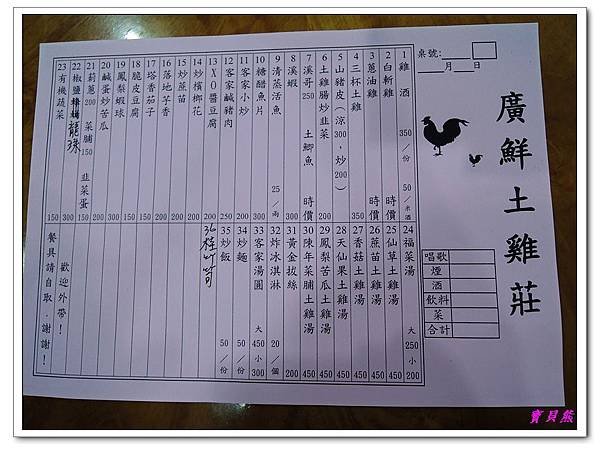 廣鮮土雞莊
桌號:
月 日
唱歌
煙
酒
飲料
菜
合計
1 雞酒 350/份 50/米酒
2 白斬雞
3 蔥油雞 時價
4 三杯土雞 350
5 山豬皮(涼300,炒200)
6 土雞腸炒韭菜 200
7 溪哥250 土鯽魚 時價
8 溪蝦 300
9 清蒸活魚 25/兩
10 糖醋魚片 300
11 客家小炒 200
12 客家鹹豬肉 200
13 XO醬豆腐 200
14 炒檳榔花 200
15 炒蔗苗 200
16 落地芋香 200
17 塔香茄子 150
18 脆皮豆腐 150
19 鳳梨蝦球 300
20 鹹蛋炒苦瓜 200
21 莿蔥200 菜脯150 韭菜蛋 150
22 椒鹽龍珠 300
23 有機蔬菜 150
24 福菜湯 大250小200
25 仙草土雞湯 450
26 蔗苗土雞湯 450
27 香菇土雞湯 450
28 天仙果土雞湯 450
29 鳳梨苦瓜土雞湯 450
30 陳年菜脯土雞湯 450
31 黃金拔絲 200
32 炸冰淇淋 20/個
33 客家湯圓 大450小300
34 炒麵 50/份
35 炒飯 50/份
36 桂竹筍
歡迎外帶!
餐具請自取.謝謝!
寶貝熊